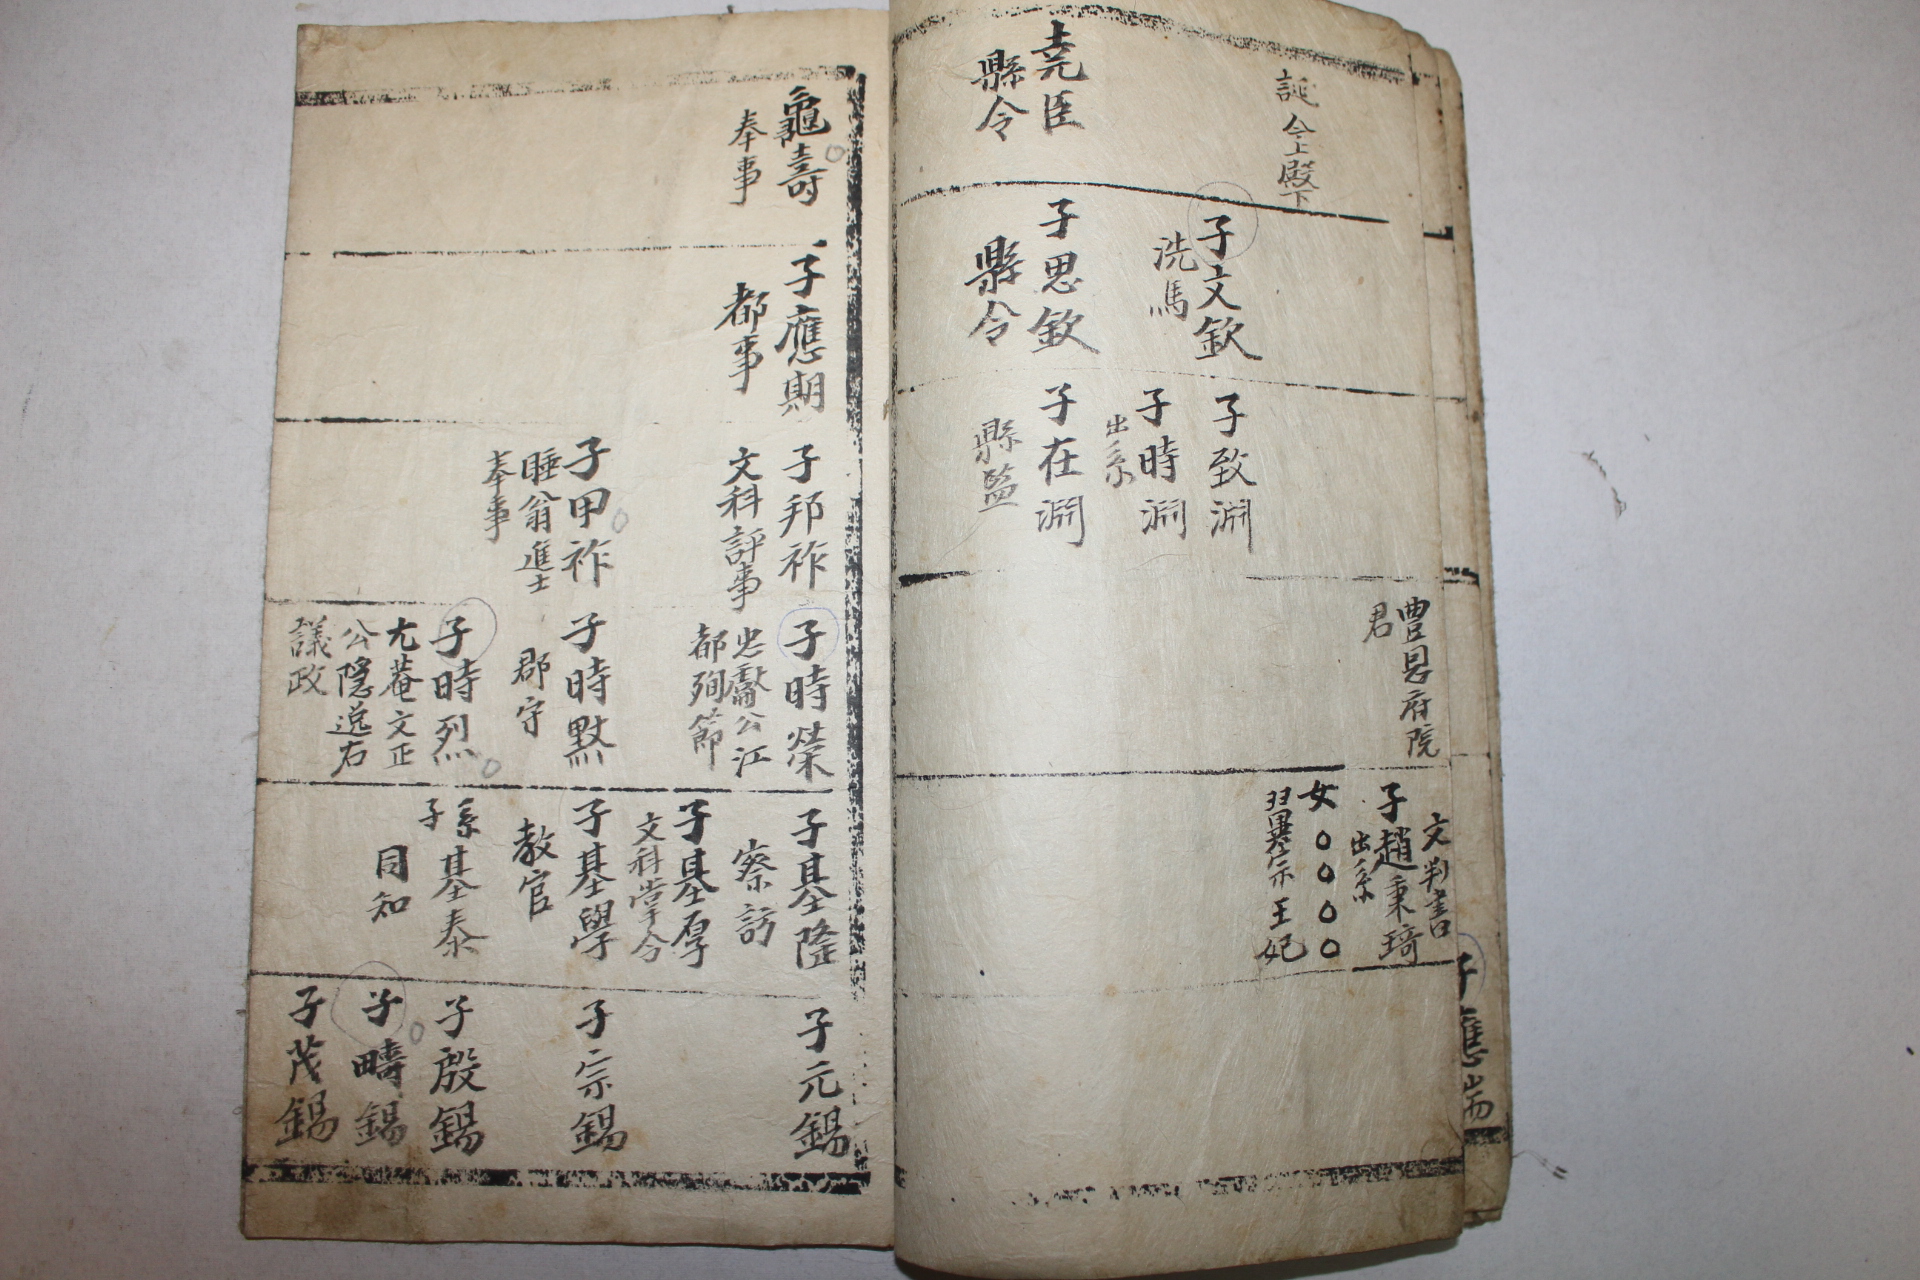 誕 今上殿下
堯臣
縣令
子文欽
洗馬
子思欽
縣令
子致淵
子時淵
出系
子在淵
縣監
豊恩府院
君
文判書
子趙秉琦
出系
女〇〇〇〇
翼宗王妃
子應端
龜壽
奉事
子應期
都事
子邦祚
文科評事
子甲祚
睡翁進士
奉事
子時榮
忠顯公江
都殉節
子時默
郡守
子時烈
尤菴文正
公隠逸右
議政
子基隆
察訪
子基厚
文科掌令
子基學
教官
系
子基泰
同知
子元錫
子宗錫
子殷錫
子疇錫
子茂錫